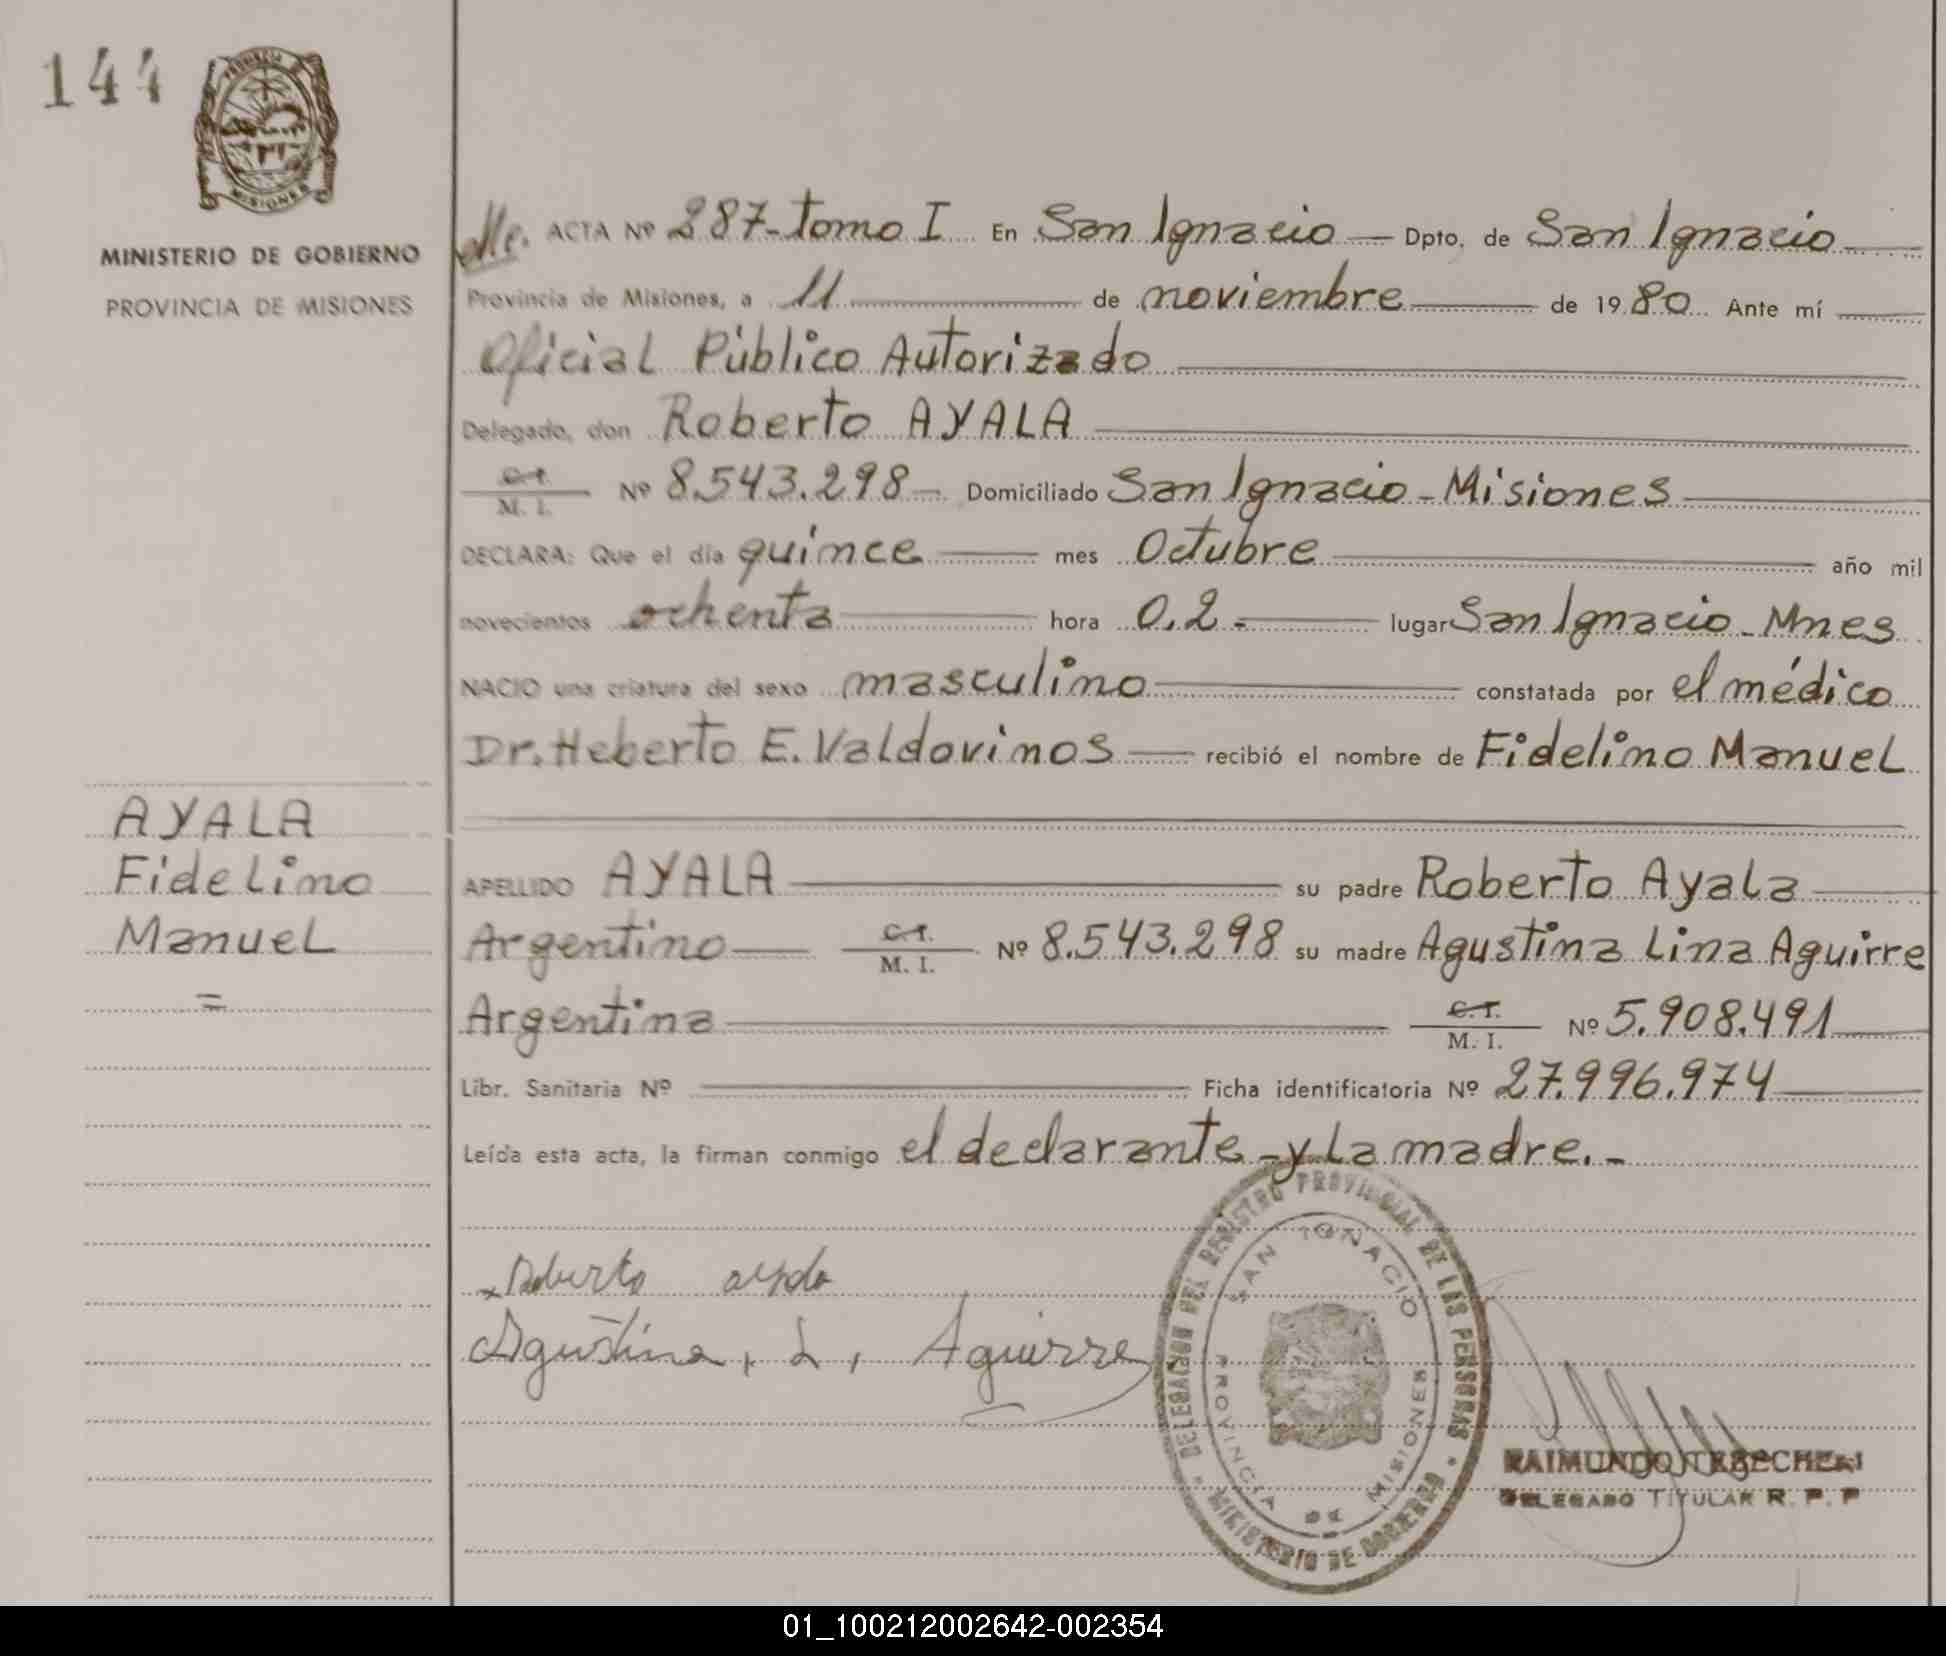 144
PROVINCIA
MISIONES
MINISTERIO DE GOBIERNO
PROVINCIA DE MISIONES
ACTA Nº 287-tomo I En San Ignacio Dpto. de San Ignacio
Provincia de Misiones, a 11 de noviembre de 1980 Ante mí
Oficial Público Autorizado
Delegado, don Roberto AYALA
C.I.
M. I. Nº 8.543.298 Domiciliado San Ignacio - Misiones
DECLARA: Que el día quince mes Octubre año mil
novecientos ochenta hora 0,2.- lugar San Ignacio - Mnes
NACIO una criatura del sexo masculino constatada por el médico
Dr. Heberto E. Valdovinos recibió el nombre de Fidelino Manuel
AYALA
Fidelino
Manuel
=
APELLIDO AYALA su padre Roberto Ayala
Argentino C.I. M. I. Nº 8.543.298 su madre Agustina Lina Aguirre
Argentina C.I. M. I. Nº 5.908.491
Libr. Sanitaria Nº Ficha identificatoria Nº 27.996.974
Leída esta acta, la firman conmigo el declarante - y la madre.-
Roberto ayala
Agustina, L, Aguirre
DELEGACION DEL REGISTRO PROVINCIAL DE LAS PERSONAS
MINISTERIO DE GOBIERNO
SAN IGNACIO
PROVINCIA DE MISIONES
RAIMUNDO
DELEGADO TITULAR R. P. P
01_100212002642-002354